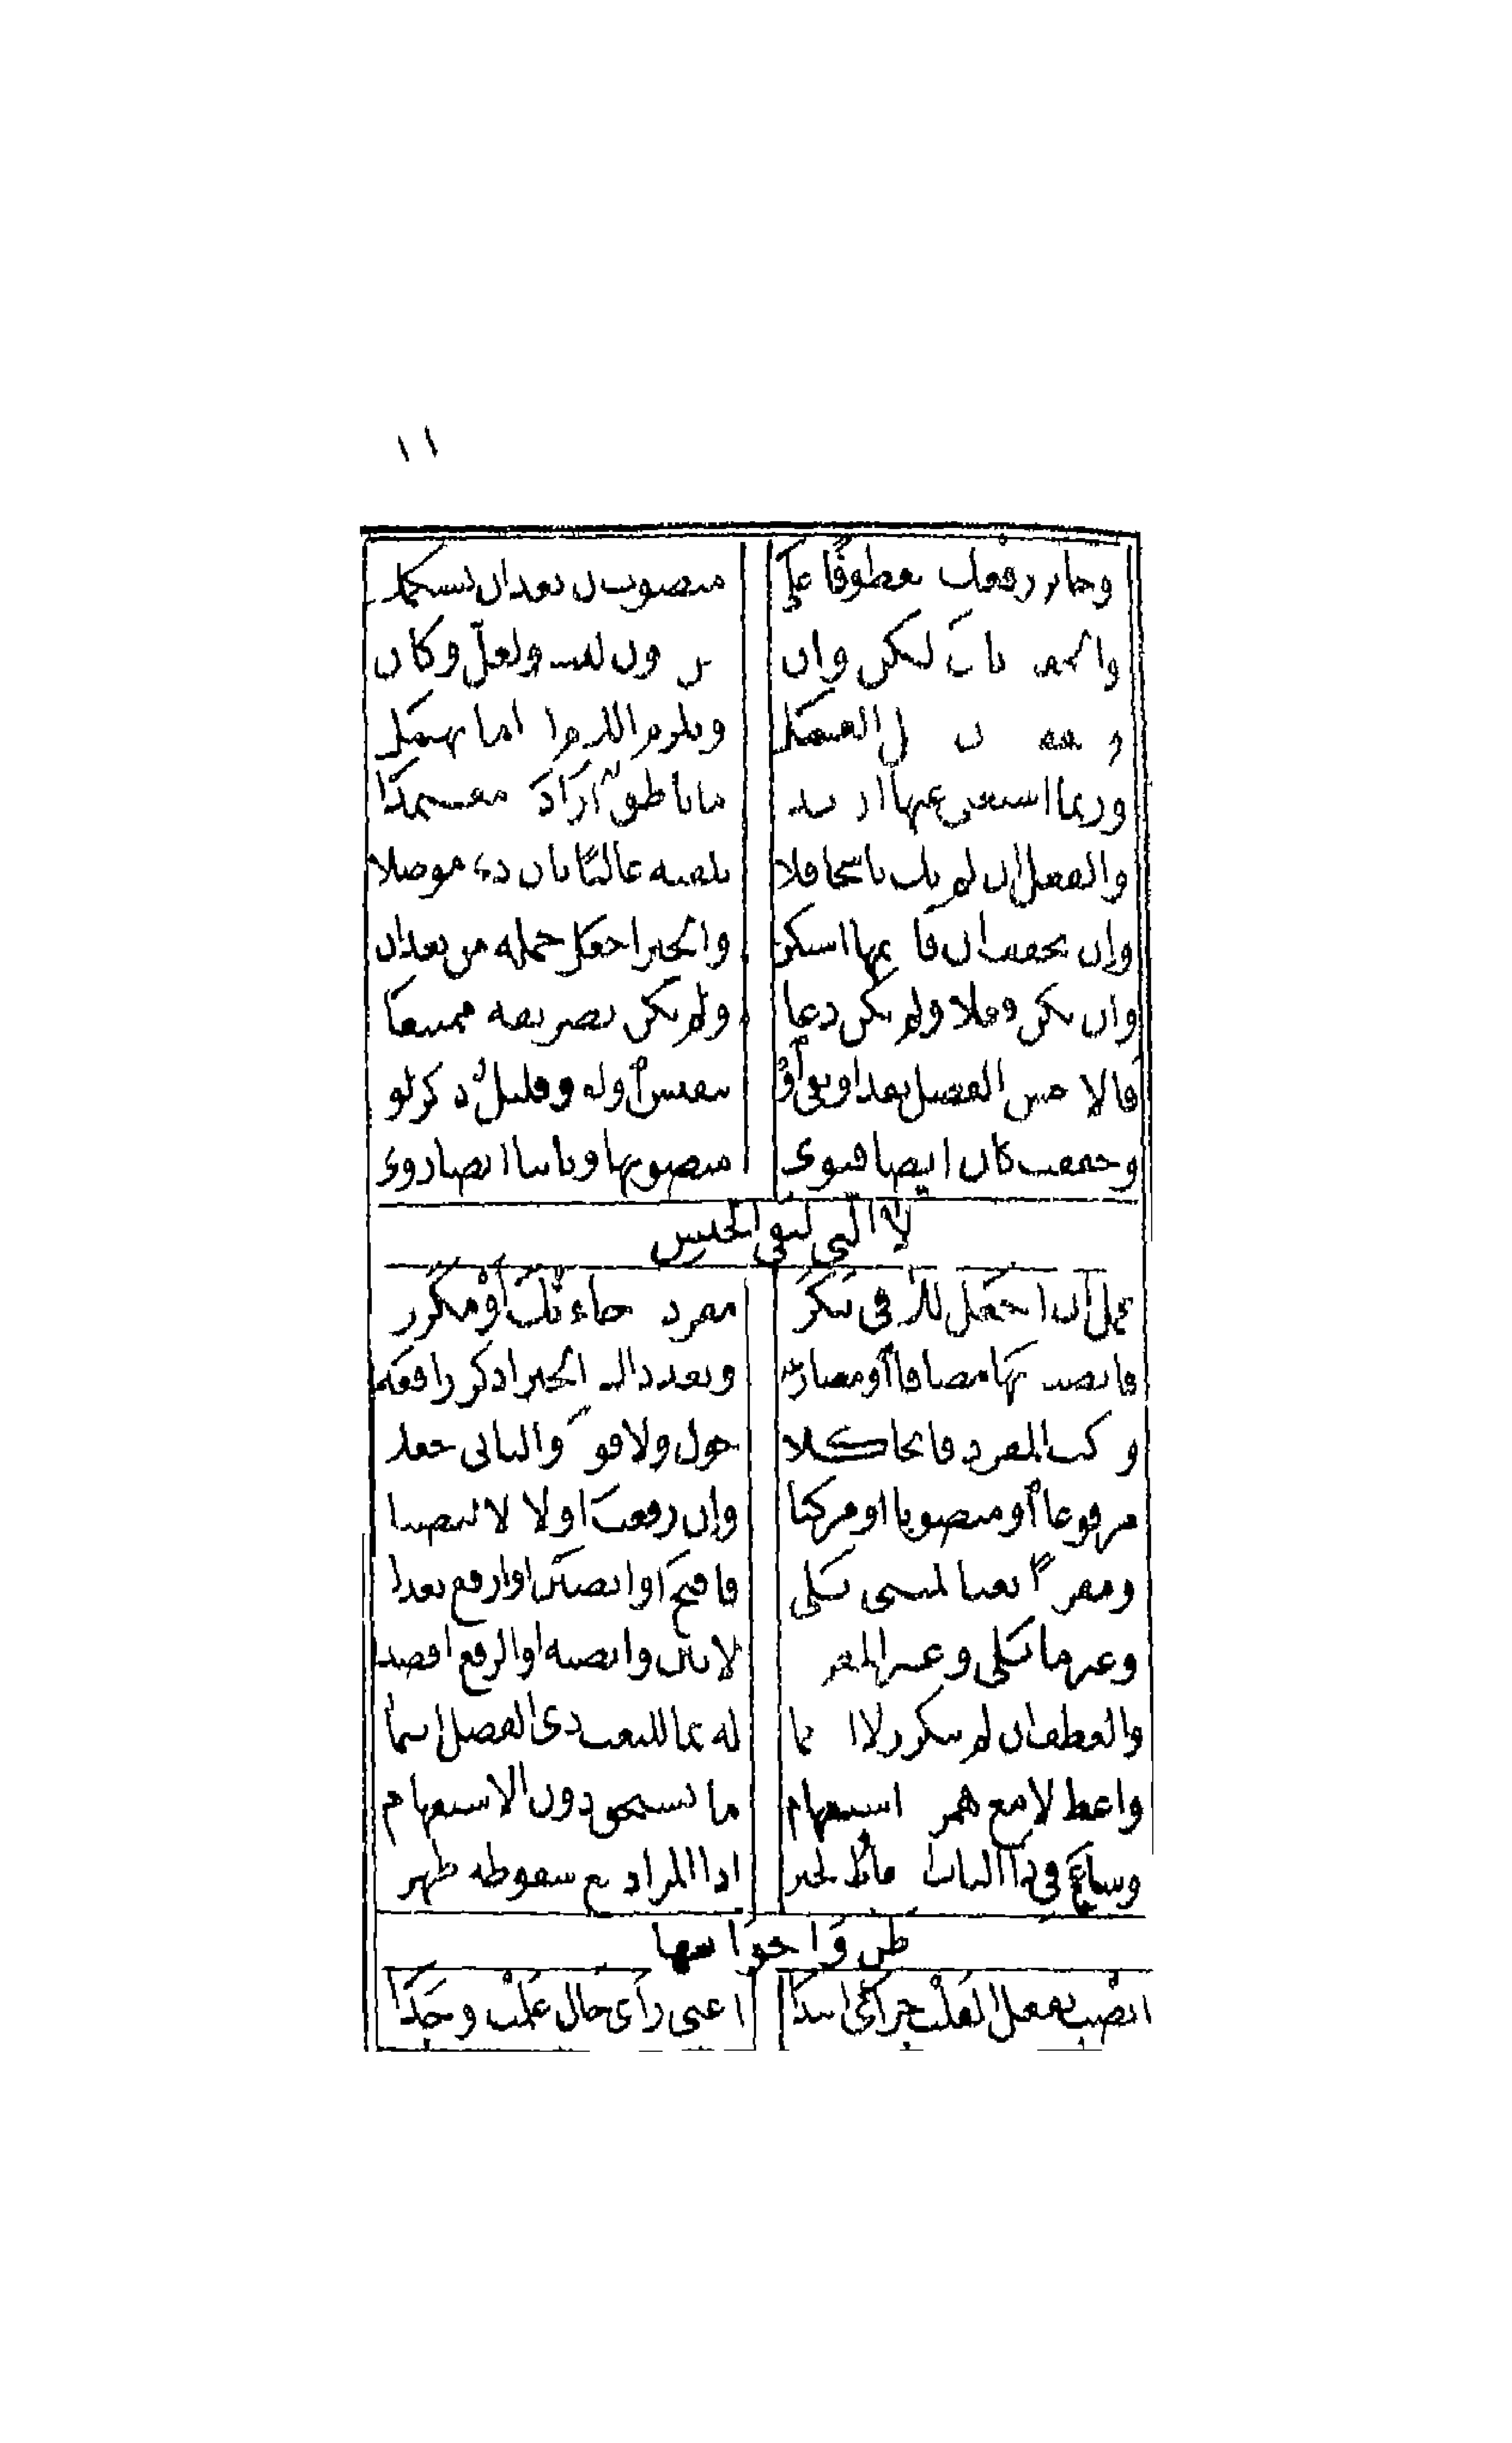 ١١
وجائز رفعك معطوفا على منصوب ان بعد ان تستكملا
والحقت بان لكن وان من دون ليت ولعل وكان
وخففت ان فقل العمل وتلزم اللام اذا ما تهمل
وربما استغنى عنها ان بدا ما ناطق اراد معتمدا
والفعل ان لم يك ناسخا فلا تلفيه غالبا بان ذى موصلا
وان تخفف ان فاسمها استكن والخبر اجعل جملة من بعد ان
وان يكن فعلا ولم يكن دعا ولم يكن تصريفه ممتنعا
فالاحسن الفصل بقد او نفى او تنفيس او لو وقليل ذكر لو
وخففت كان ايضا فنوى منصوبها وثابتا ايضا روى
لا التى لنفى الجنس
عمل ان اجعل للا فى نكره مفردة جاءتك او مكرره
فانصب بها مضافا او مضارعه وبعد ذاك الخبر اذكر رافعه
وركب المفرد فاتحا كلا حول ولا قوة والثانى اجعلا
مرفوعا او منصوبا او مركبا وان رفعت اولا لا تنصبا
ومفردا نعتا لمبنى يلى فافتح او انصبن او ارفع تعدل
وغير ما يلى وغير المفرد لا تبن وانصبه او الرفع اقصد
والعطف ان لم تتكرر لا احكما له بما للنعت ذى الفصل انتمى
واعط لا مع همزة استفهام ما تستحق دون الاستفهام
وشاع فى ذا الباب اسقاط الخبر اذا المراد مع سقوطه ظهر
ظن واخواتها
انصب بفعل القلب جزأى ابتدا اعنى رأى خال علمت وجدا